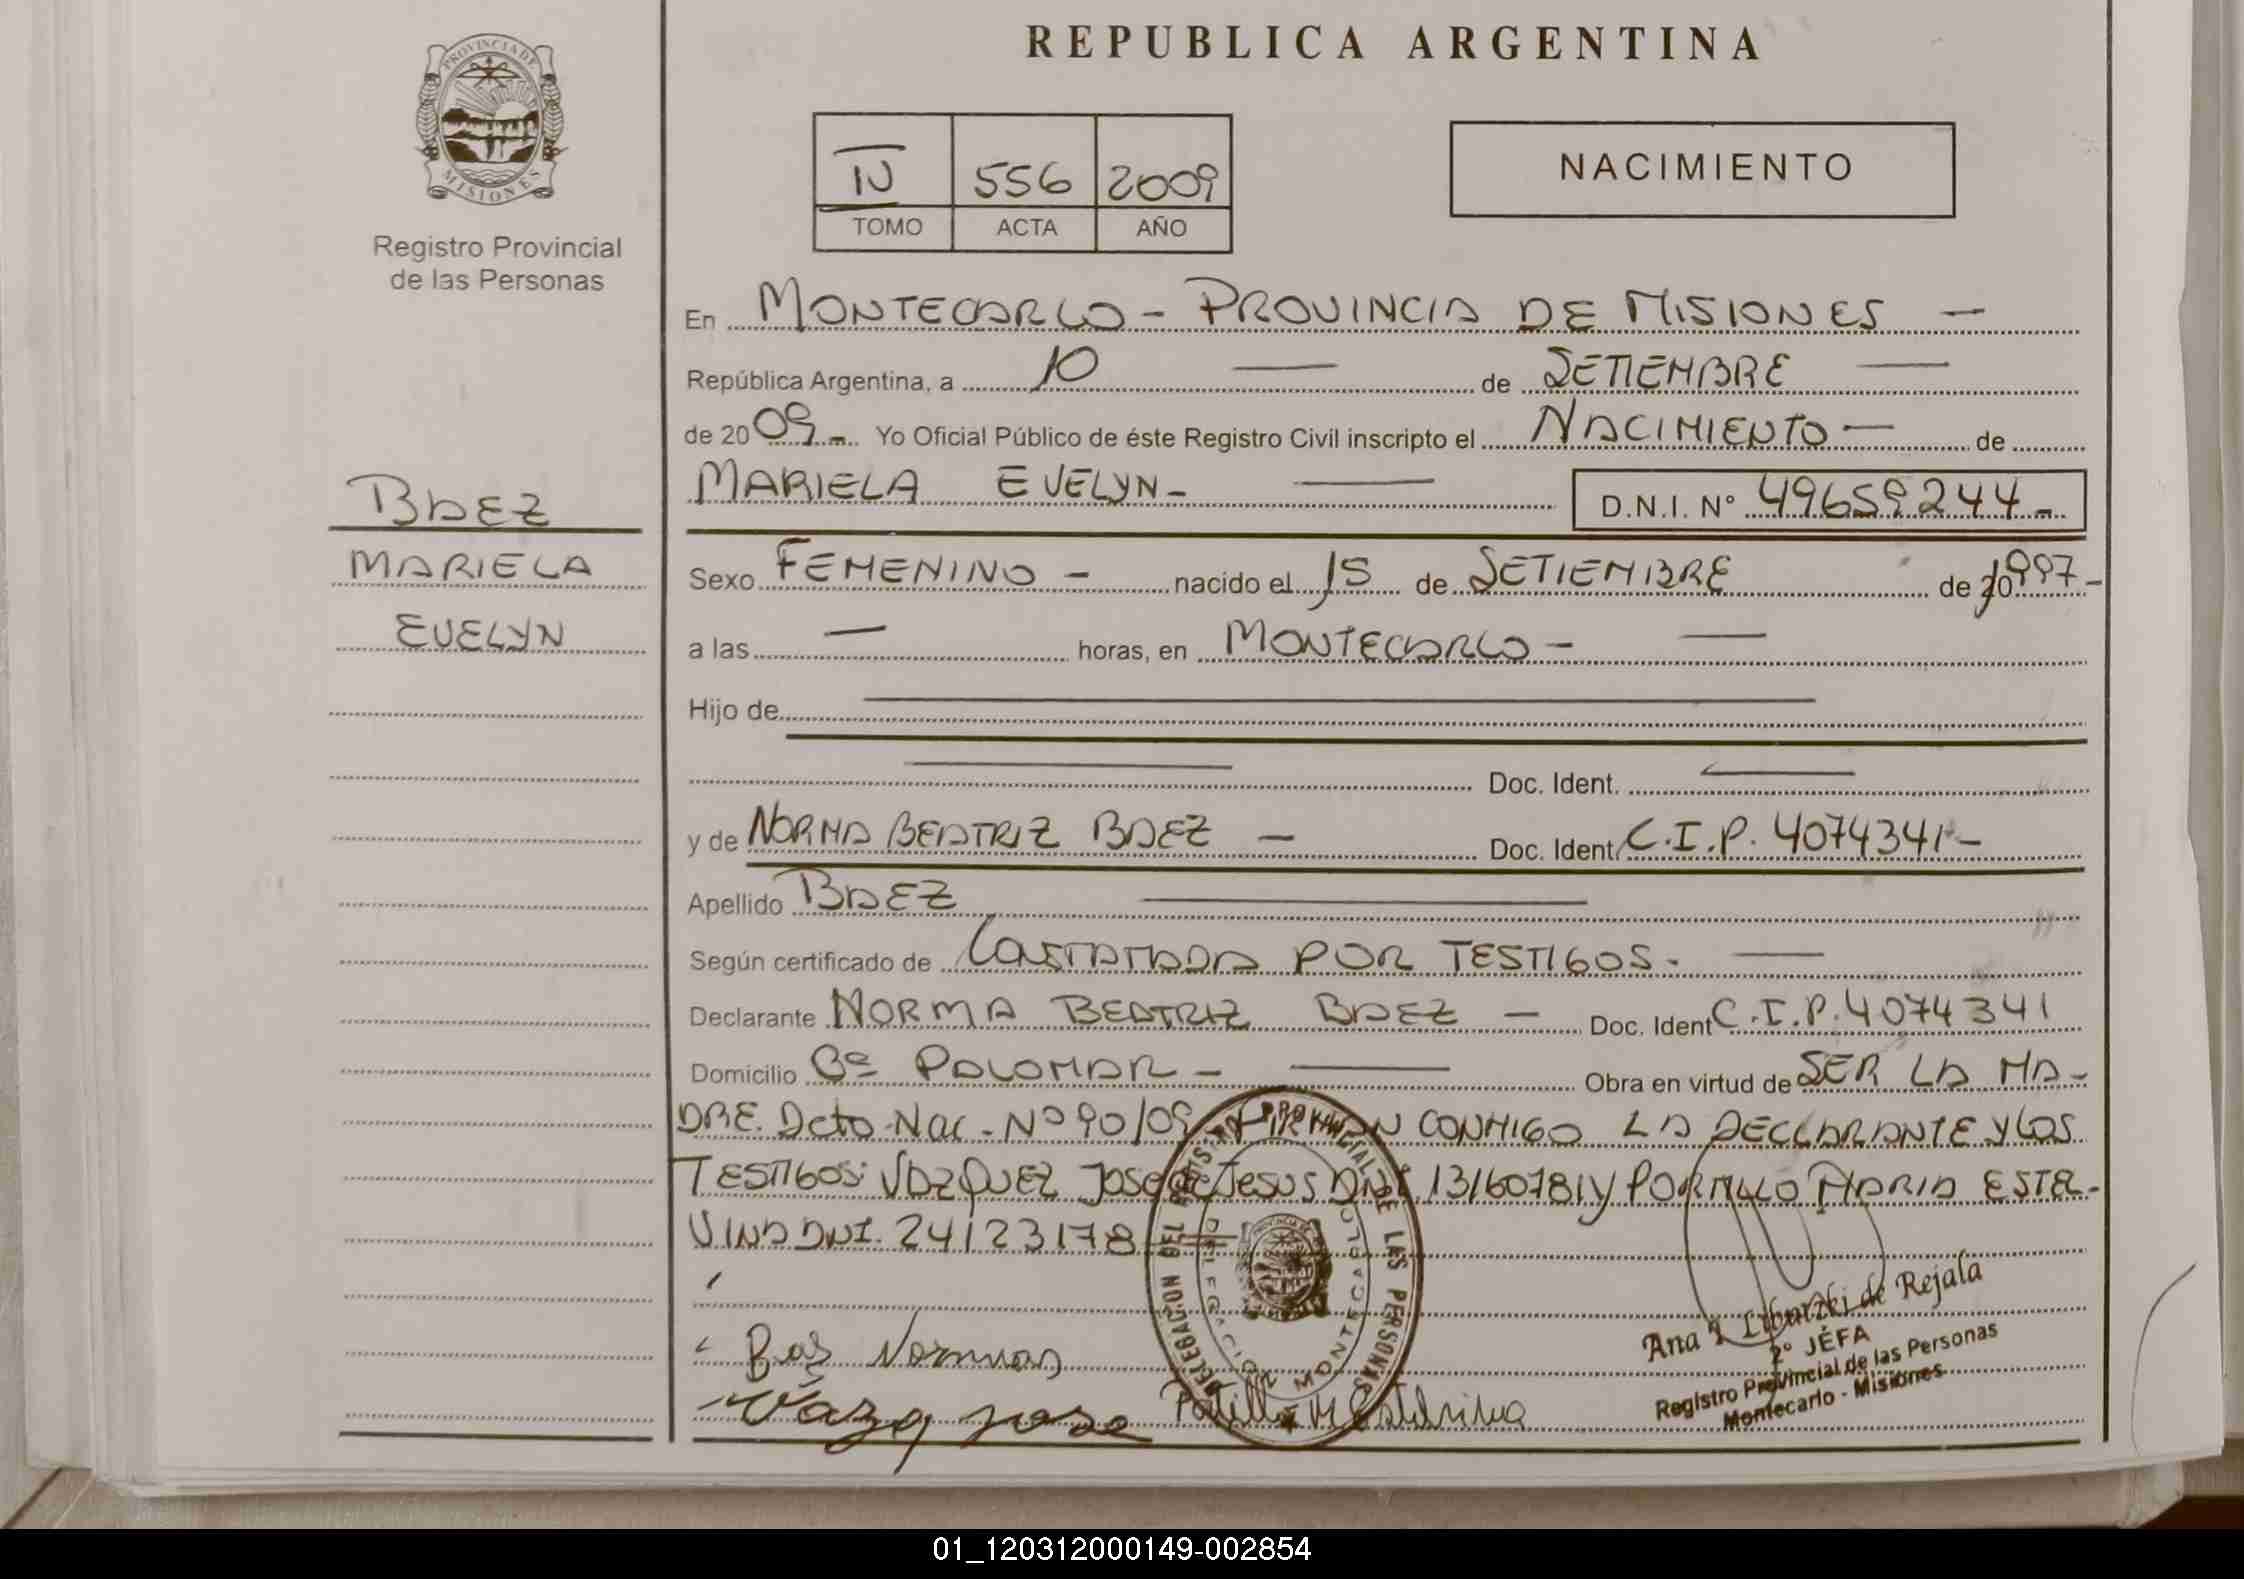 PROVINCIA DE
MISIONES
Registro Provincial
de las Personas
REPUBLICA ARGENTINA
IV 556 2009
TOMO ACTA AÑO
NACIMIENTO
En MONTECARLO - PROVINCIA DE MISIONES -
República Argentina, a 10 — de SETIEMBRE —
de 2009 - Yo Oficial Público de éste Registro Civil inscripto el NACIMIENTO - de
MARIELA EVELYN - — D.N.I. N° 49659244 -
BAEZ
MARIELA
EVELYN
Sexo FEMENINO - nacido el 15 de SETIEMBRE de 1997 -
a las — horas, en MONTECARLO - —
Hijo de —
— Doc. Ident. —
y de NORMA BEATRIZ BAEZ - Doc. Ident. C.I.P. 4074341 -
Apellido BAEZ —
Según certificado de CONSTATADA POR TESTIGOS. —
Declarante NORMA BEATRIZ BAEZ - Doc. Ident C.I.P. 4074341
Domicilio Bº PALOMAR - — Obra en virtud de SER LA MA-
DRE. Dcto. Nac. Nº 90/09 CONMIGO LA DECLARANTE Y LOS
TESTIGOS: VAZQUEZ JOSE DE JESUS DNI 13160781 Y PORTILLO MARIA ESTEL-
VINA DNI. 24123178
DELEGACION DEL REGISTRO PROVINCIAL DE LAS PERSONAS
DELEGACION MONTECARLO
Baes Norma
Vazq jose
Portillo M Estelvina
Ana Libutzki de Rejala
2° JEFA
Registro Provincial de las Personas
Montecarlo - Misiones
01_120312000149-002854